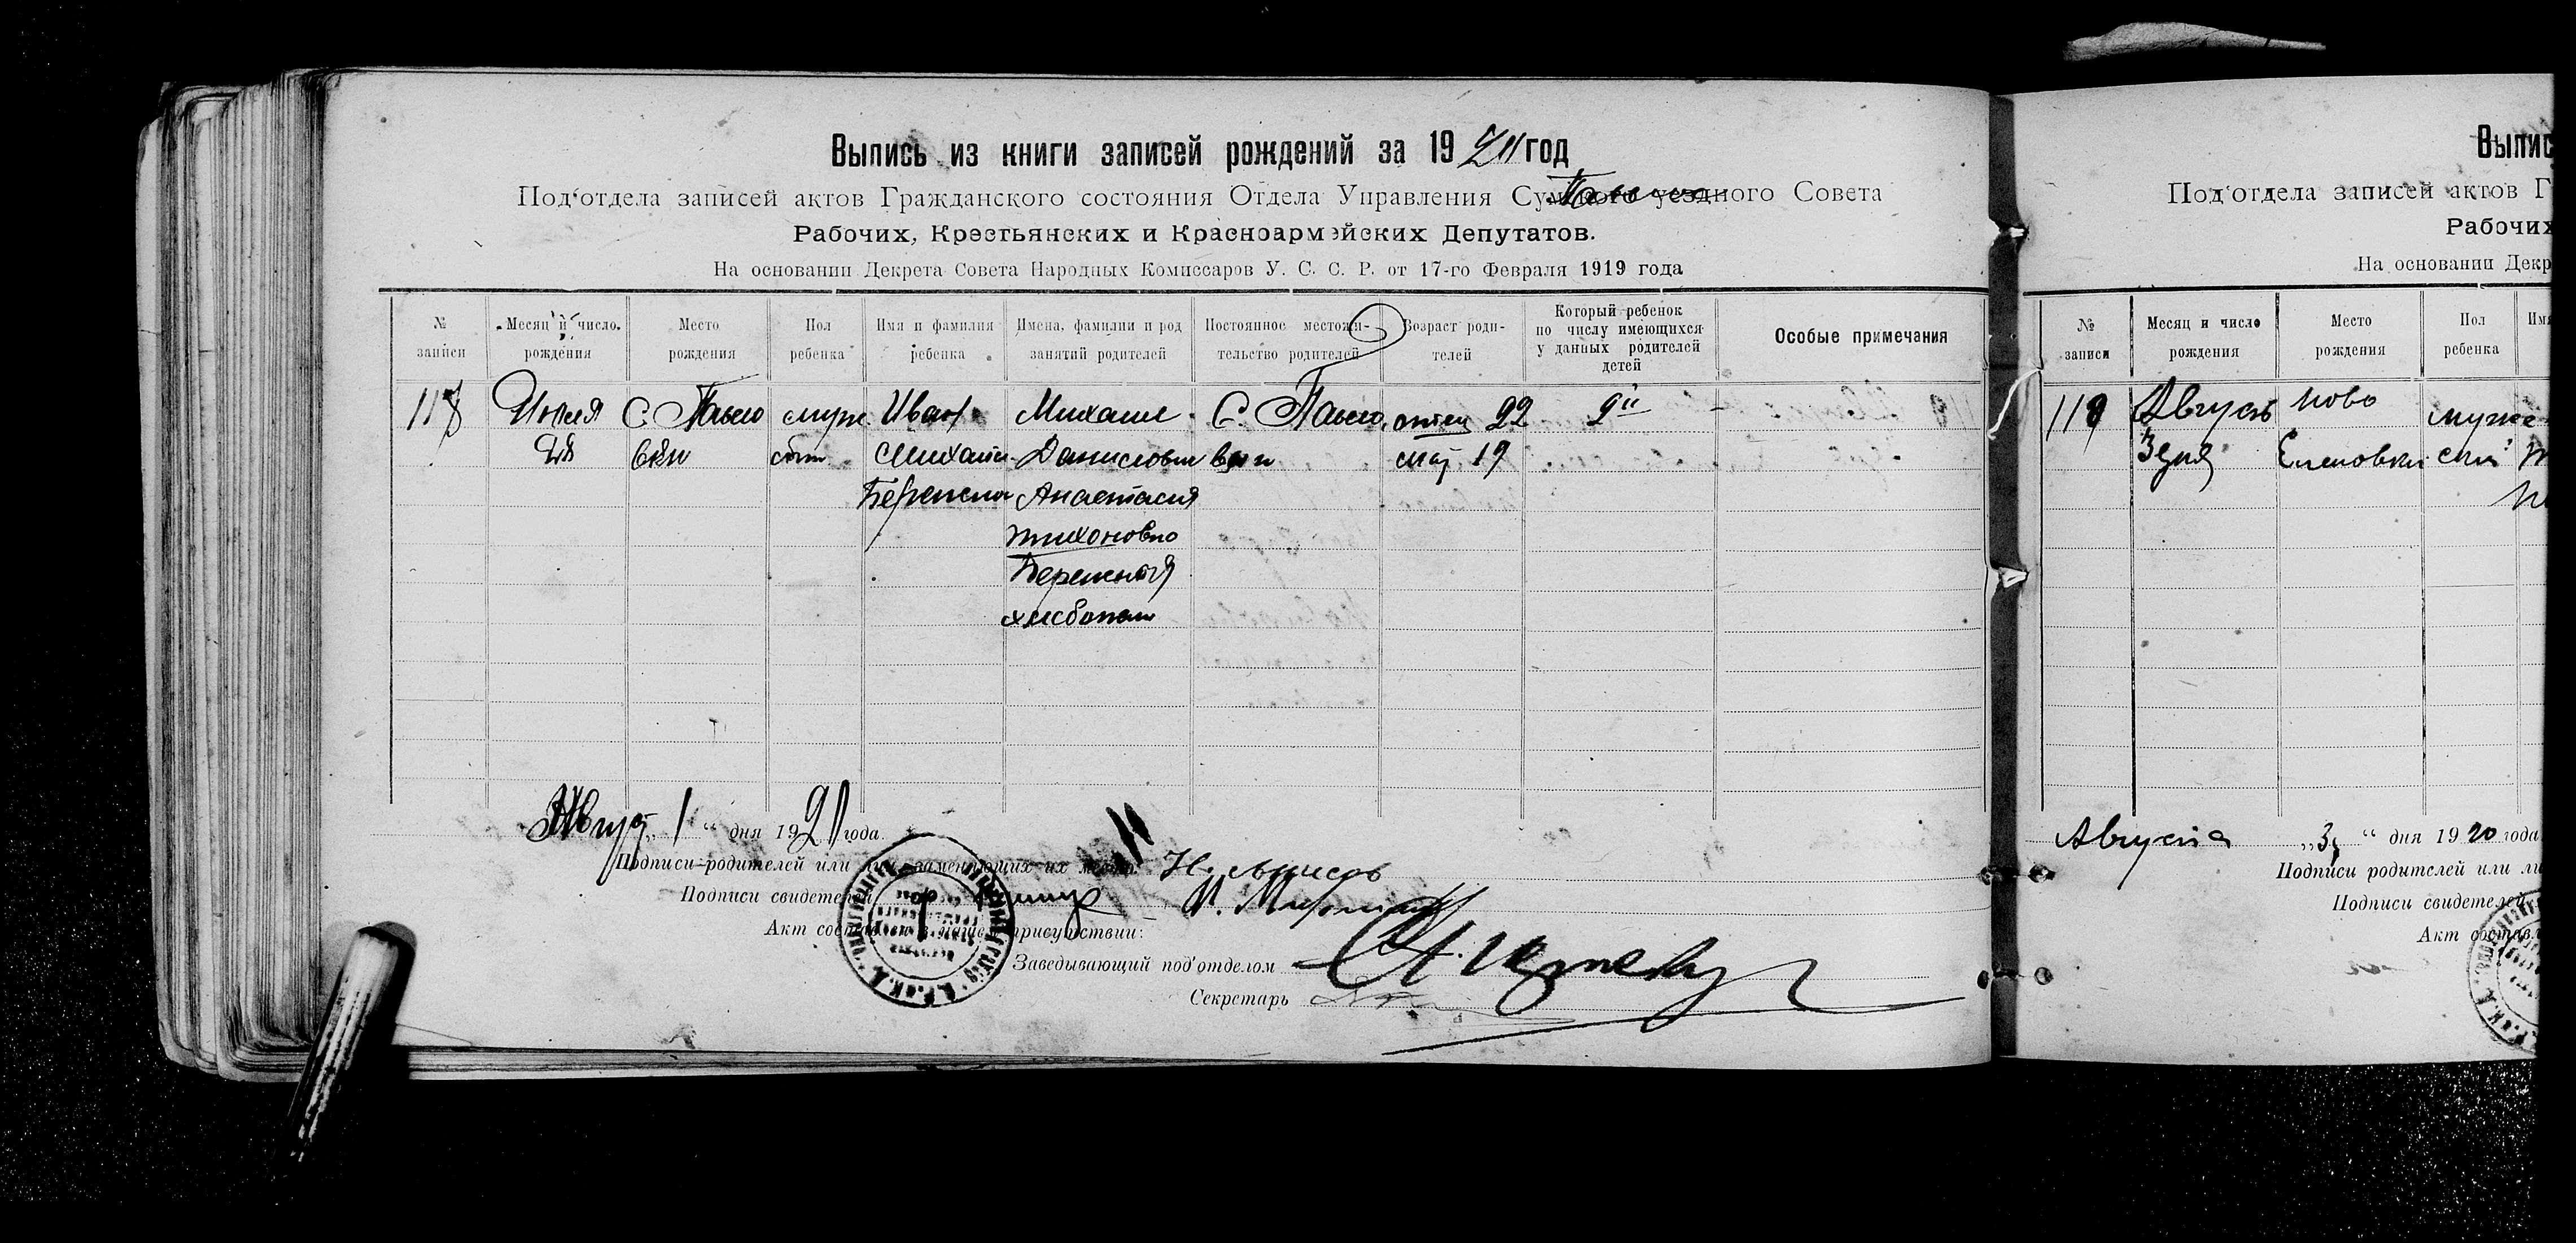 Выпись из книги записей рождений за 1920 год
Под'отдела записей актов Гражданского состояния Отдела Управления Сумского уездного Совета
Рабочих, Крестьянских и Красноармейских Депутатов.
На основании Декрета Совета Народных Комиссаров У. С. С. Р. от 17-го Февраля 1919 года
№ записи
Месяц и число рождения
Место рождения
Пол ребенка
Имя и фамилия ребенка
Имена, фамилии и род занятий родителей
Постоянное местожительство родителей
Возраст родителей
Который ребенок по числу имеющихся у данных родителей детей
Особые примечания
118 Июля С. Иван Михаил С. отец 22 2й
Михаил. Данилович 19
Анастасия
Тихоновна
Бережная
хлебопаш
Август 1 " дня 1920 года
Подписи родителей или лиц заменяющих их место:
Подписи свидетелей
Акт составлен в нашем присутствии:
Заведывающий под'отделом
Секретарь
Выпис
Под'отдела записей актов Г
Рабочих
На основании Декр
№ записи
Месяц и число рождения
Место рождения
Пол ребенка
Имя
119 Август Ново муже
3 дня Еленовка ский
Августа "3" дня 1920 года
Подписи родителей или ли
Подписи свидетелей
Акт составл